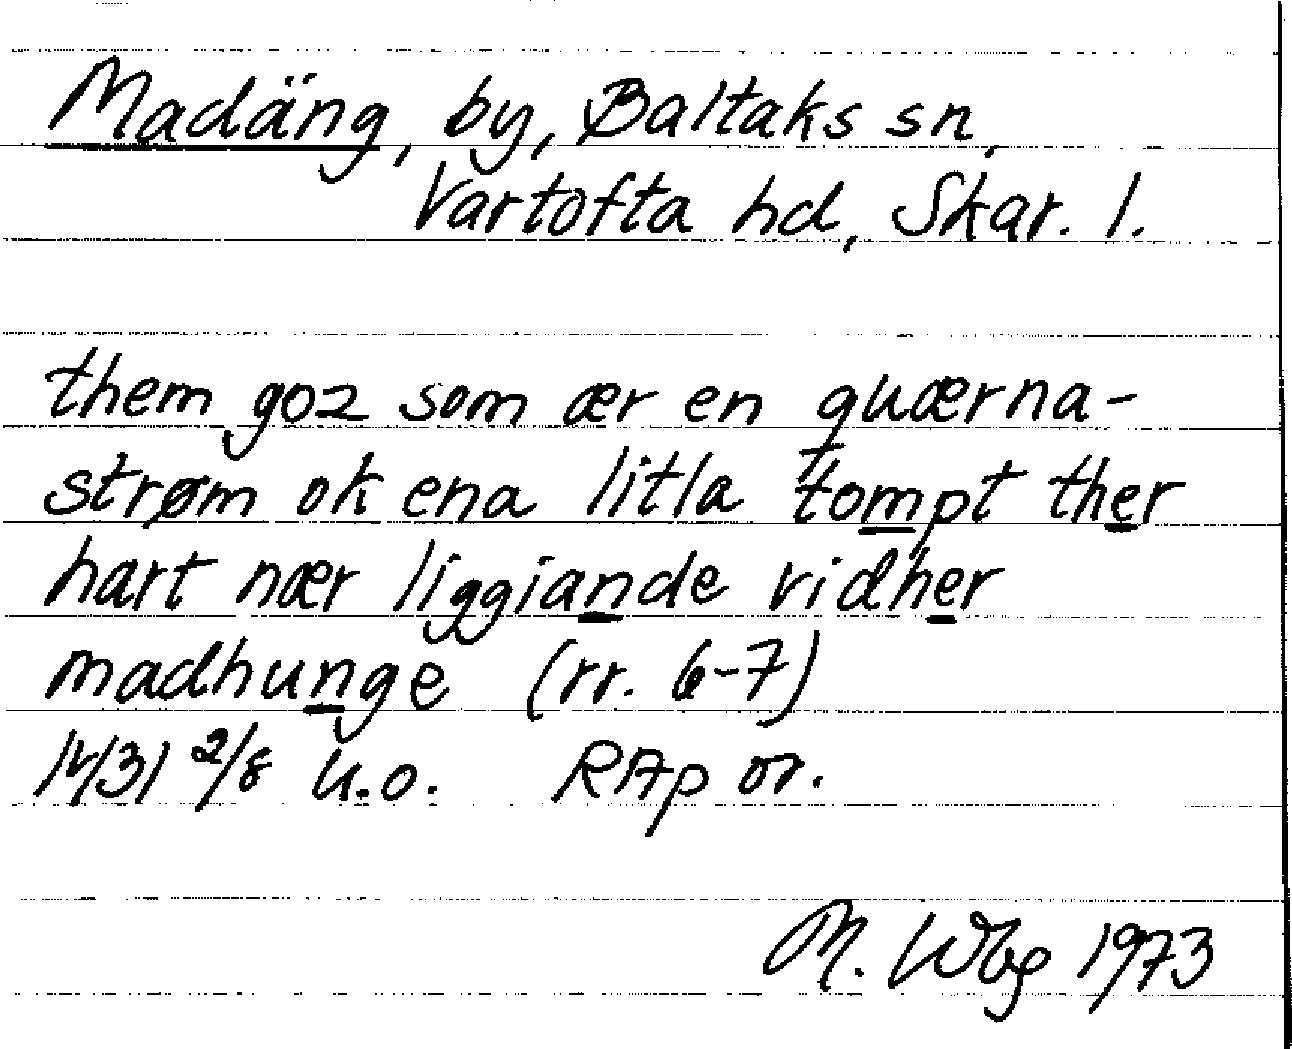 Madäng, by, Baltaks sn,
Vartofta hd, Skar. l.
them goz som ær en quærna-
strøm ok ena litla tompt ther
hart nær liggiande vidher
madhunge (rr. 6-7)
1431 2/8 u.o. RAp or.
M. Wbg 1973